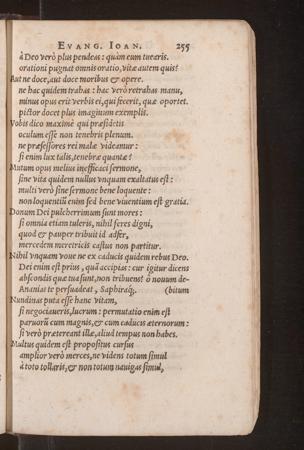 EVANG. IOAN. 255
à Deo verò plus pendeas: quàm eum tuearis.
orationi pugnat omnis oratio, vitæ autem quis?
Aut ne doce, aut doce moribus & opere.
ne hac quidem trahas: hac verò retrahas manu,
minus opus erit verbis ei, qui fecerit, quæ oportet.
pictor docet plus imaginum exemplis.
Vobis dico maximè qui præsidetis
oculum esse non tenebris plenum.
ne præsessores rei malæ videamur:
si enim lux talis, tenebræ quantæ?
Mutum opus melius inefficaci sermone,
sine vita quidem nullus vnquam exaltatus est:
multi verò sine sermone bene loquente:
non loquentiũ enim sed bene viuentium est gratia.
Donum Dei pulcherrimum sunt mores:
si omnia etiam tuleris, nihil feres digni,
quod & pauper tribuit id adfer,
mercedem meretricis castus non partitur.
Nihil vnquam voue ne ex caducis quidem rebus Deo.
Dei enim est prius, quã accipias: cur igitur dicens
abscondis quæ tua sunt, non tribuens? ô nouum de-
Ananias te persuadeat, Saphiraq́;. (bitum
Nundinas puta esse hanc vitam,
si negociaueris, lucrum: permutatio enim est
paruorũ cum magnis, & cum caducis æternorum:
si verò prætereant illæ, aliud tempus non habes.
Multus quidem est propositus cursus
amplior verò merces, ne videns totum simul
à toto tollaris, & non totum nauigas simul,